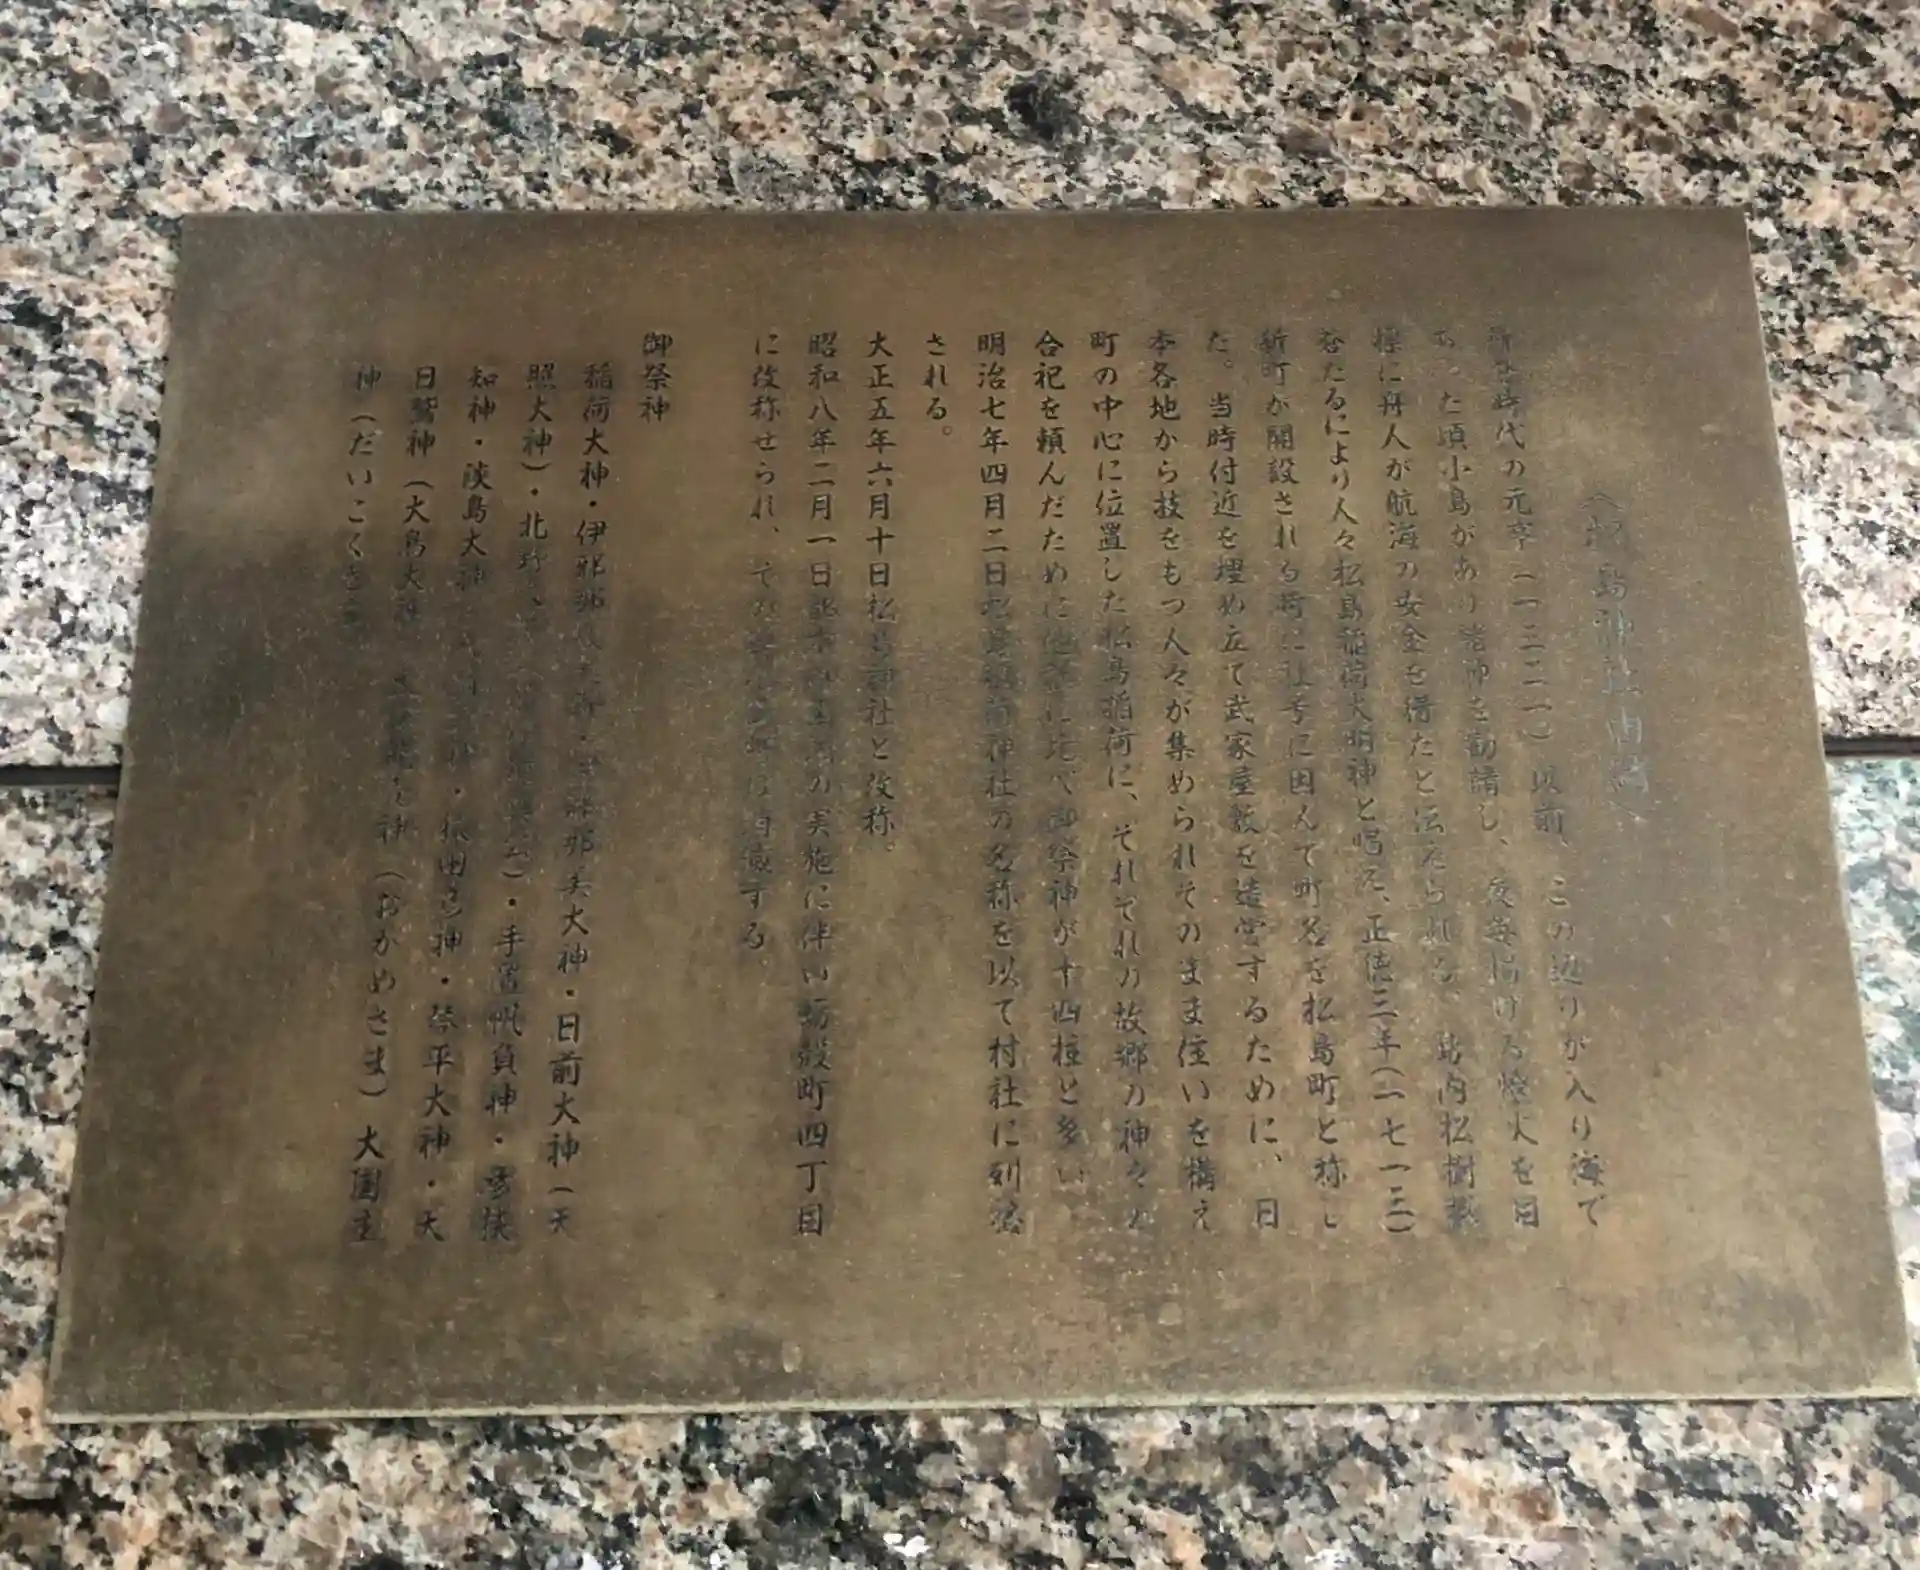 島神社由緒
時代の元亨(一三二一)以前、この辺りが入り海で
った頃小島があり諸神を勧請し、夜毎掲げる燈火を目
標に舟人が航海の安全を得たと伝えられる。島内松樹
たるにより人々松島稲荷大明神と唱え、正徳三年(一七一三)
新町が開設される砌に社号に因んで町名を松島町と称し
た。当時付近を埋め立て武家屋敷を造営するために、日
本各地から技をもつ人々が集められそのまま住いを構え
町の中心に位置した松島稲荷に、それぞれの故郷の神々の
合祀を頼んだために他社に比べ御祭神が十四柱と多い
明治七年四月二日松島稲荷神社の名称を以て村社に列格
される。
大正五年六月十日松島神社と改称。
昭和八年二月一日の実施に伴い蛎殻町四丁目
に改称せられ、その
御祭神
稲荷大神・伊邪那岐大神・伊邪那美大神・日前大神(天
照大神)・北野大神・手置帆負神・彦狭
知神・淡島大神・猿田彦神・琴平大神・天
日鷲神(大鳥大神)神(おかめさま)大国主
神(だいこくさま)